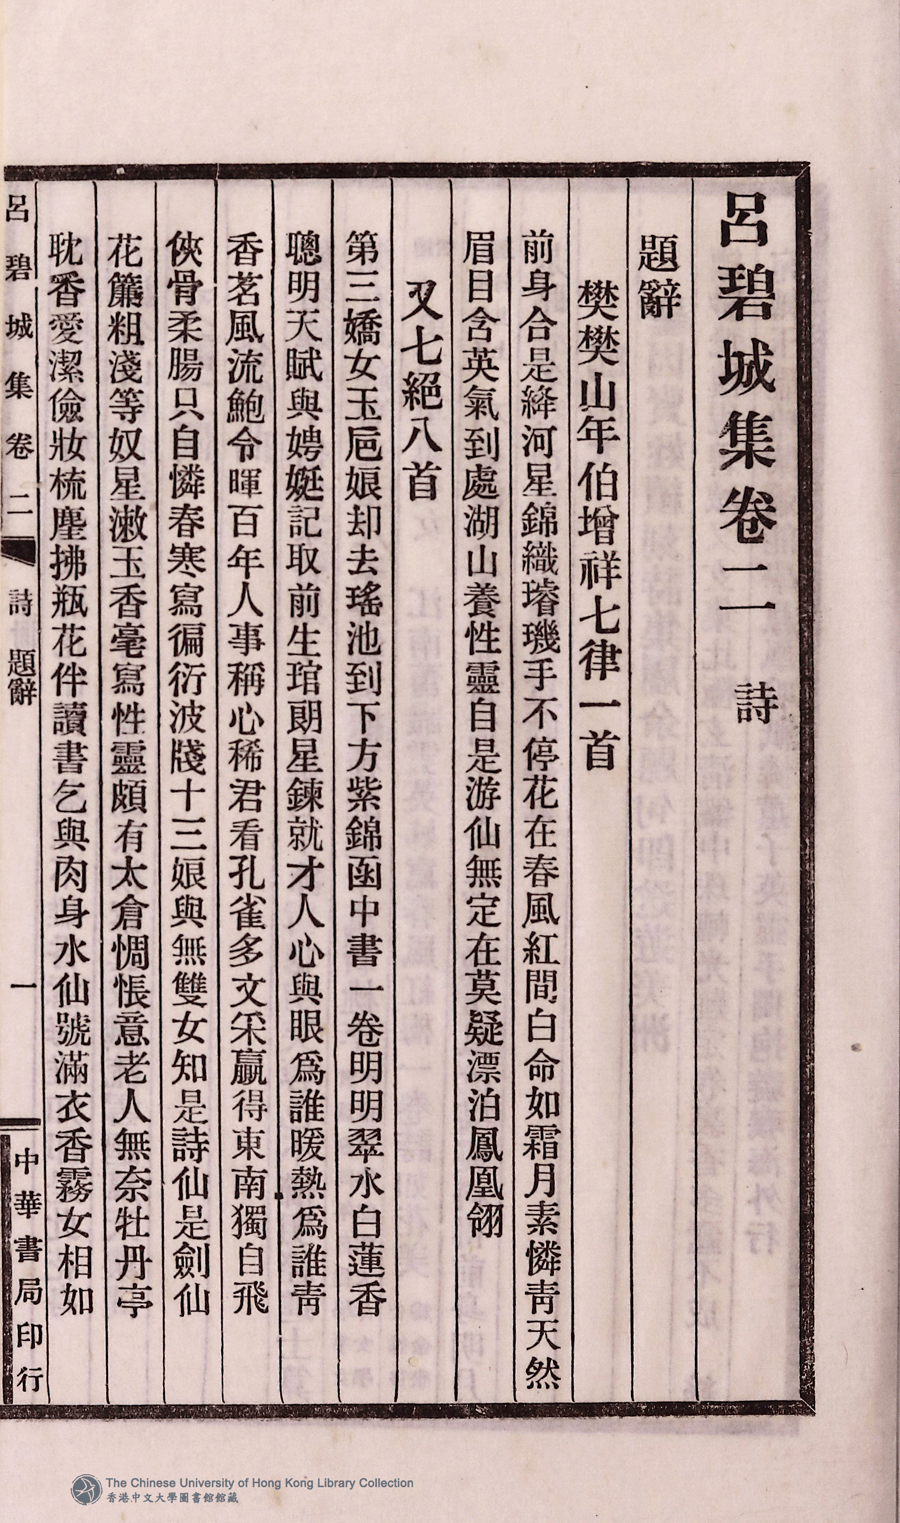 呂碧城集卷二　詩
題辭
樊樊山年伯增祥七律一首
前身合是絳河星錦織璿璣手不停花在春風紅間白命如霜月素憐靑天然
眉目含英氣到處湖山養性靈自是游仙無定在莫疑漂泊鳳凰翎
又七絕八首
第三嬌女玉巵娘却去瑤池到下方紫錦函中書一卷明明翠水白蓮香
聰明天賦與娉婷記取前生琯朗星鍊就才人心與眼爲誰暖熱爲誰靑
香茗風流鮑令暉百年人事稱心稀君看孔雀多文采贏得東南獨自飛
俠骨柔腸只自憐春寒寫徧衍波牋十三娘與無雙女知是詩仙是劍仙
花簾粗淺等奴星漱玉香毫寫性靈頗有太倉惆悵意老人無奈牡丹亭
耽香愛潔儉妝梳麈拂瓶花伴讀書乞與肉身水仙號滿衣香霧女相如
呂碧城集卷二　詩　題辭　一　中華書局印行
The Chinese University of Hong Kong Library Collection
香港中文大學圖書館館藏